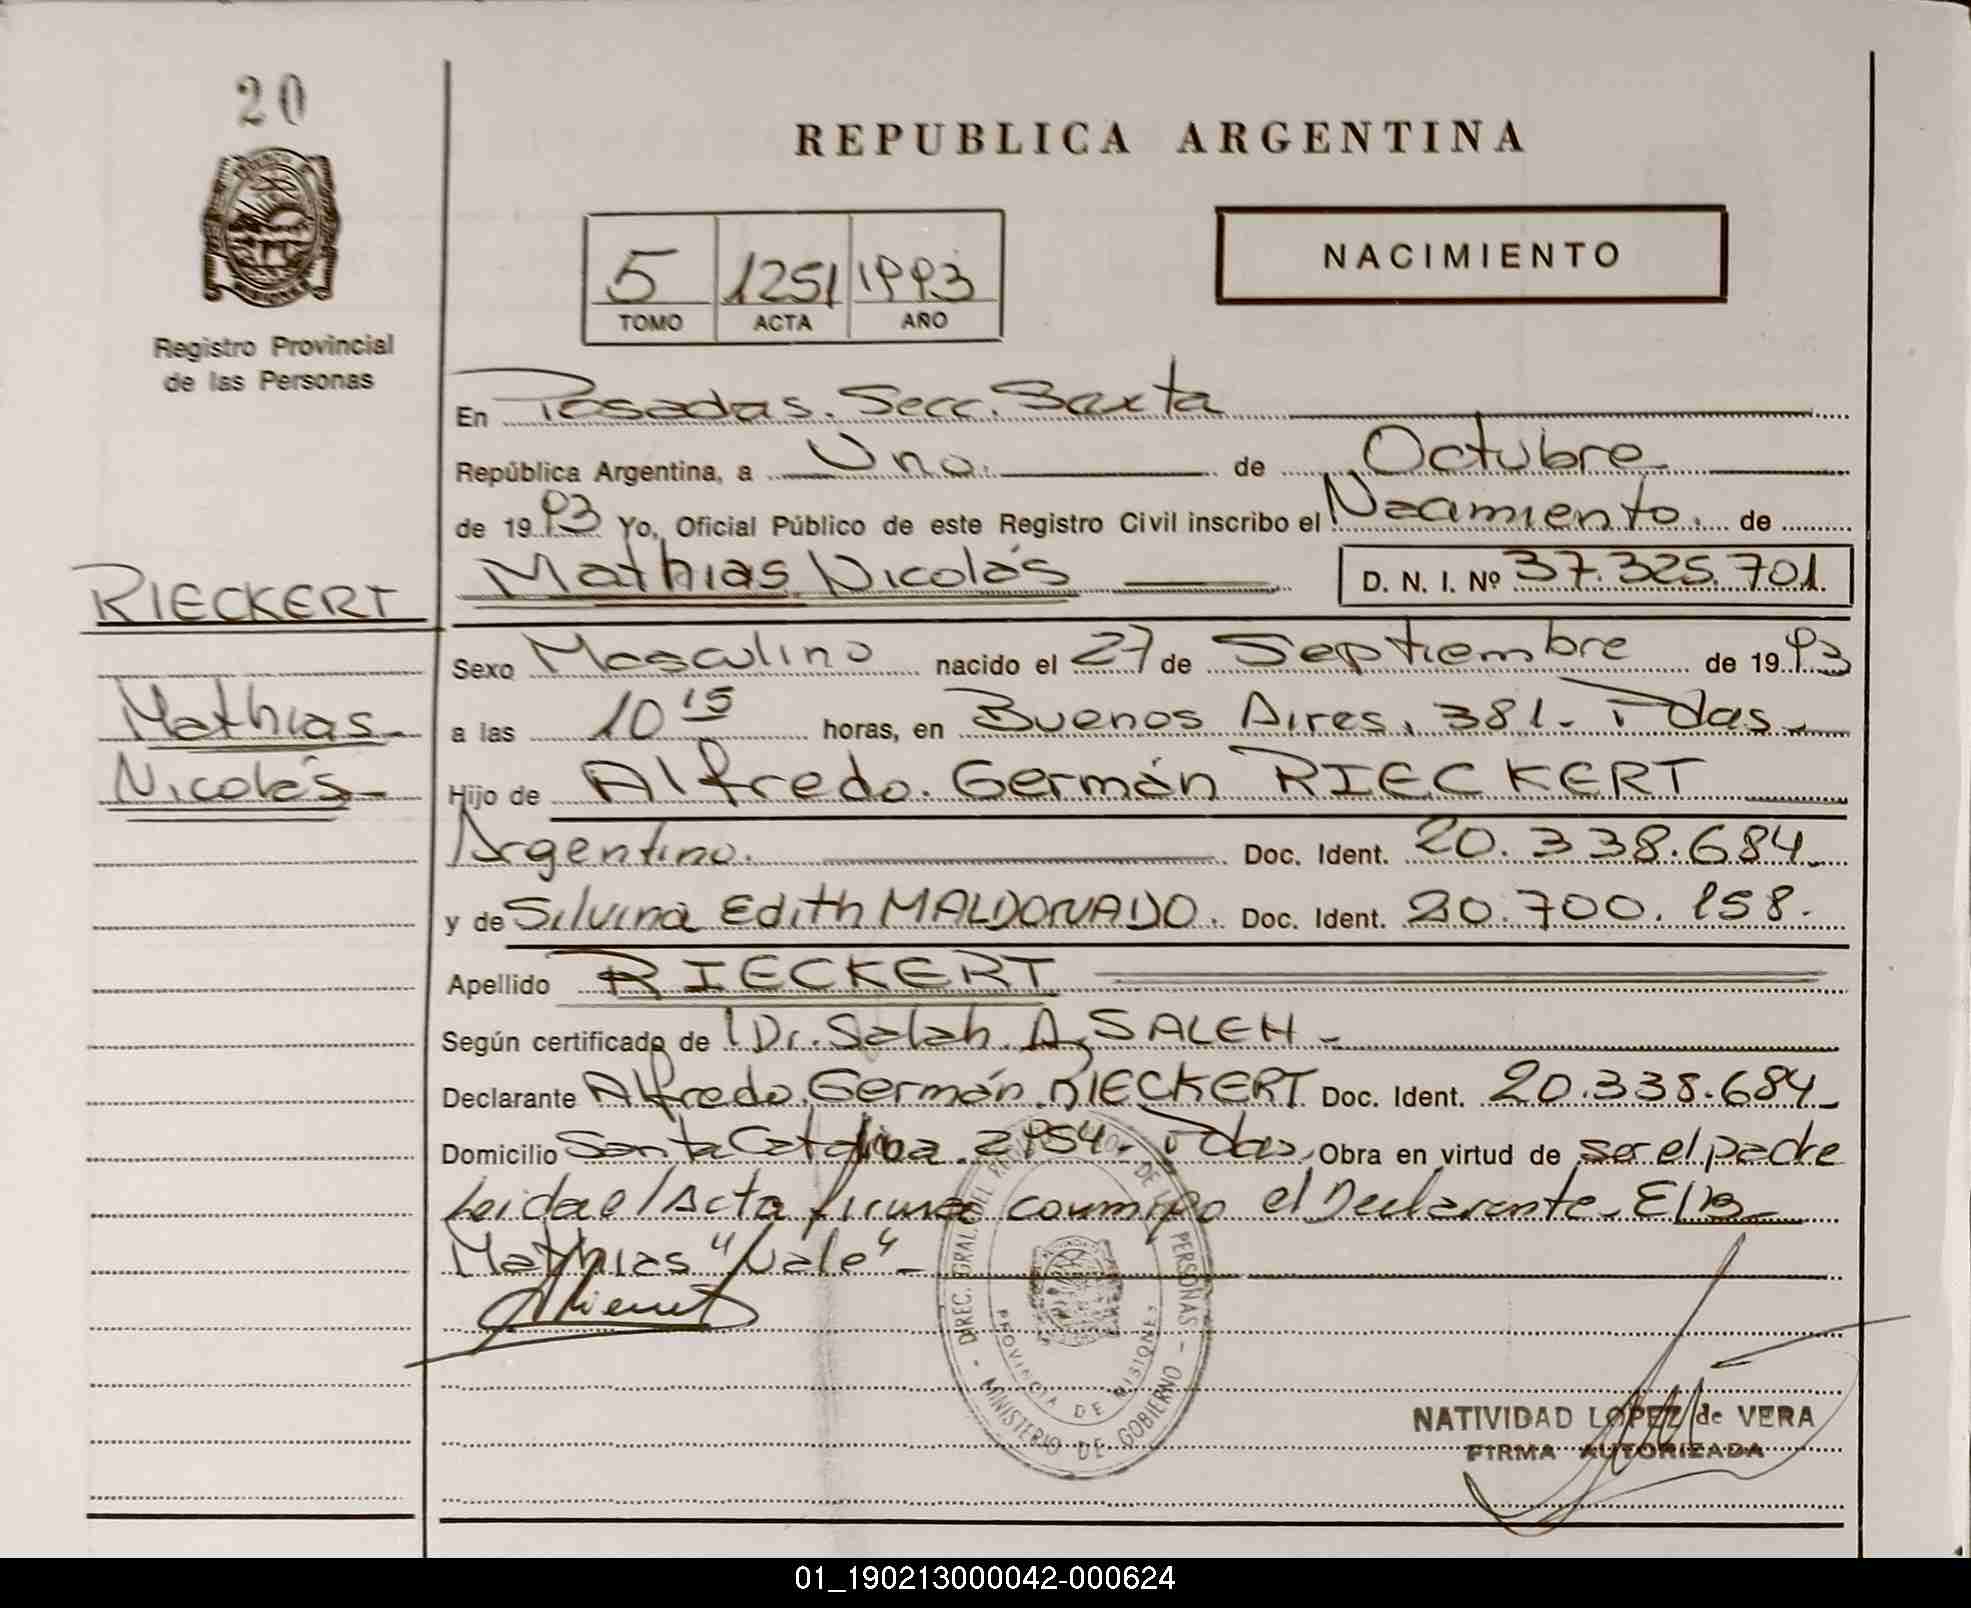 20
REPUBLICA ARGENTINA
NACIMIENTO
5 1251 1993
TOMO ACTA AÑO
Registro Provincial
de las Personas
En Posadas. Secc. Sexta
República Argentina, a Uno. de Octubre
de 1993 Yo, Oficial Público de este Registro Civil inscribo el Nacimiento. de
Mathias Nicolás D. N. I. Nº 37.325.701.
RIECKERT
Mathias
Nicolás
Sexo Masculino nacido el 27 de Septiembre de 1993
a las 10 15 horas, en Buenos Aires, 381. Pdas
Hijo de Alfredo. Germán RIECKERT
Argentino. Doc. Ident. 20.338.684
y de Silvina Edith MALDONADO. Doc. Ident. 20.700.158.
Apellido RIECKERT
Según certificado de Dr. Salah A. SALEH
Declarante Alfredo. Germán. RIECKERT Doc. Ident. 20.338.684
Domicilio Santa Catalina. 2954. Pdas, Obra en virtud de ser el padre
Leida el Acta firma conmigo el Declarante. E/R
Mathias "Vale"
DIREC. GRAL. DEL REGISTRO PROV. DE LAS PERSONAS
PROVINCIA DE MISIONES
MINISTERIO DE GOBIERNO
NATIVIDAD LOPEZ de VERA
FIRMA AUTORIZADA
01_190213000042-000624